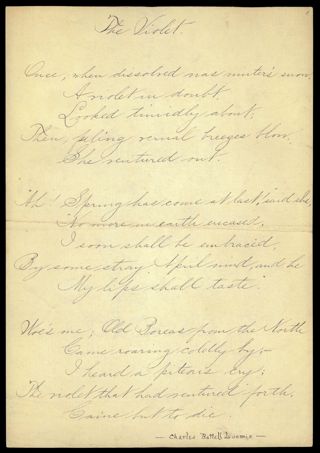 The Violet.
Once, when dissolved was winter's snow,
A violet in doubt
Looked timidly about;
Then, feeling vernal breezes blow,
She ventured out.
"Ah! Spring has come at last," said she,
"No more in earth encased,
I soon shall be embraced,
By some stray April wind, and he
My lips shall taste.
Woe's me; Old Boreas from the North
Came roaring coldly by;—
I heard a piteous cry;
The violet that had ventured forth,
Came but to die.
— Charles Battell Loomis —